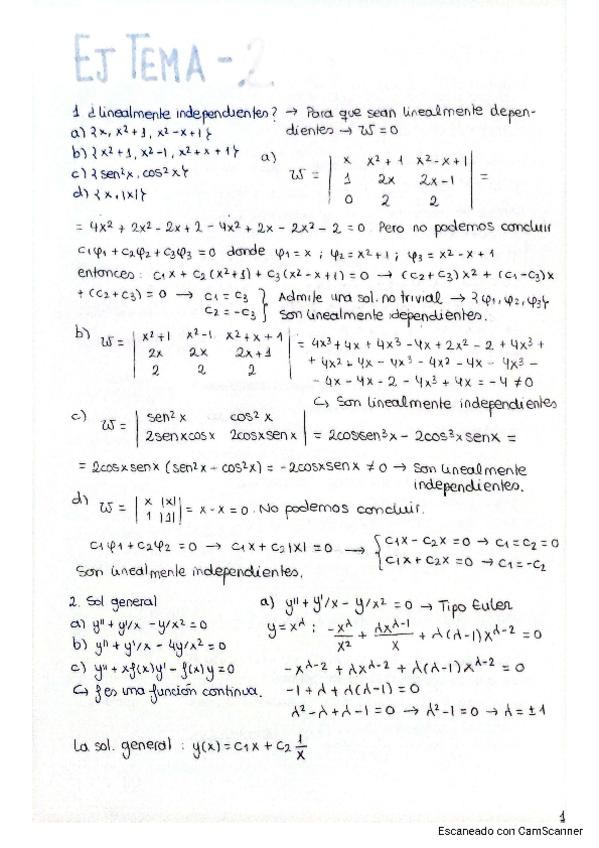 EJ TEMA - 2
1 ¿linealmente independientes? → Para que sean linealmente depen-
a) {x, x²+1, x²-x+1} dientes → W = 0
b) {x²+1, x²-1, x²+x+1}
c) {sen²x, cos²x}
d) {x, |x|}
a) W = | x x²+1 x²-x+1 |
| 1 2x 2x-1 | =
| 0 2 2 |
= 4x² + 2x² - 2x + 2 - 4x² + 2x - 2x² - 2 = 0. Pero no podemos concluir
c1φ1 + c2φ2 + c3φ3 = 0 donde φ1 = x ; φ2 = x²+1 ; φ3 = x² - x + 1
entonces: c1x + c2(x²+1) + c3(x²-x+1) = 0 → (c2+c3)x² + (c1-c3)x
+ (c2+c3) = 0 → c1 = c3 } Admite una sol. no trivial → {φ1, φ2, φ3}
c2 = -c3 } son linealmente dependientes.
b) W = | x²+1 x²-1 x²+x+1 | = 4x³ + 4x + 4x³ - 4x + 2x² - 2 + 4x³ +
| 2x 2x 2x+1 | + 4x² + 4x - 4x³ - 4x² - 4x - 4x³ -
| 2 2 2 | - 4x - 4x - 2 - 4x³ + 4x = -4 ≠ 0
↳ Son linealmente independientes
c) W = | sen²x cos²x |
| 2senxcosx 2cosxsenx | = 2cossen³x - 2cos³xsenx =
= 2cosxsenx (sen²x - cos²x) = -2cosxsenx ≠ 0 → Son linealmente
independientes.
d) W = | x |x| |
| 1 |1| | = x - x = 0. No podemos concluir.
c1φ1 + c2φ2 = 0 → c1x + c2|x| = 0 → { c1x - c2x = 0 → c1 = c2 = 0
{ c1x + c2x = 0 → c1 = -c2
Son linealmente independientes.
2. Sol general
a) y'' + y'/x - y/x² = 0
b) y'' + y'/x - 4y/x² = 0
c) y'' + xf(x)y' - f(x)y = 0
↳ f es una función continua.
a) y'' + y'/x - y/x² = 0 → Tipo Euler
y = x^λ : -x^λ/x² + λx^(λ-1)/x + λ(λ-1)x^(λ-2) = 0
-x^(λ-2) + λx^(λ-2) + λ(λ-1)x^(λ-2) = 0
-1 + λ + λ(λ-1) = 0
λ² - λ + λ - 1 = 0 → λ² - 1 = 0 → λ = ±1
La sol. general : y(x) = c1x + c2 1/x
1
Escaneado con CamScanner